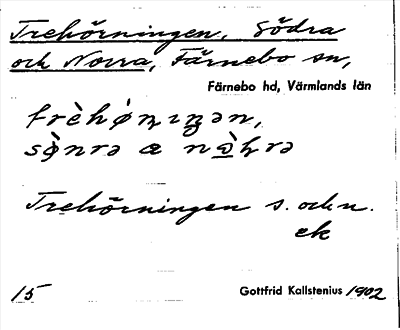 Trehörningen, Södra
och Norra, Färnebo sn,
Färnebo hd, Värmlands län
Trehörningen s. och n.
ek
15 Gottfrid Kallstenius 1902